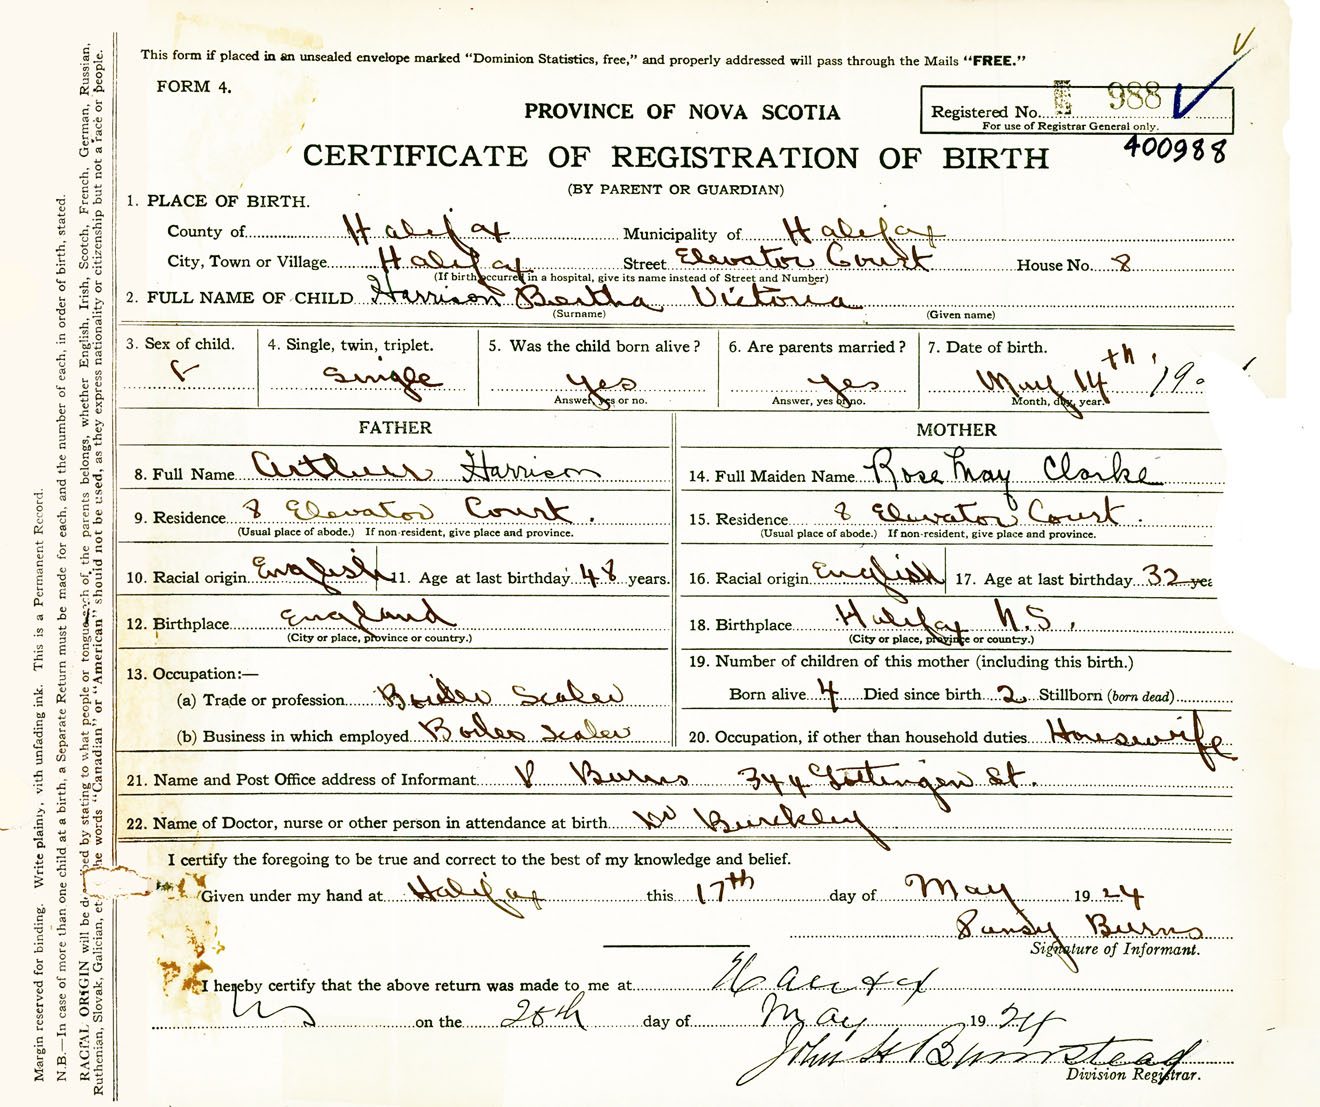 This form if placed in an unsealed envelope marked "Dominion Statistics, free," and properly addressed will pass through the Mails "FREE."
FORM 4.
PROVINCE OF NOVA SCOTIA
Registered No. 988
For use of Registrar General only.
400988
CERTIFICATE OF REGISTRATION OF BIRTH
(BY PARENT OR GUARDIAN)
1. PLACE OF BIRTH.
County of Halifax Municipality of Halifax
City, Town or Village Halifax Street Elevator Court House No. 8
(If birth occurred in a hospital, give its name instead of Street and Number)
2. FULL NAME OF CHILD Harrison Bertha Victoria
(Surname) (Given name)
3. Sex of child. 4. Single, twin, triplet. 5. Was the child born alive? 6. Are parents married? 7. Date of birth.
F Single yes yes May 14th, 19
Answer, yes or no. Answer, yes or no. Month, day, year.
FATHER MOTHER
8. Full Name Arthur Harrison 14. Full Maiden Name Rose May Clarke
9. Residence 8 Elevator Court. 15. Residence 8 Elevator Court.
(Usual place of abode.) If non-resident, give place and province. (Usual place of abode.) If non-resident, give place and province.
10. Racial origin English 11. Age at last birthday 48 years. 16. Racial origin English 17. Age at last birthday 32 yea
12. Birthplace England 18. Birthplace Halifax N.S.
(City or place, province or country.) (City or place, province or country.)
13. Occupation:— 19. Number of children of this mother (including this birth.)
(a) Trade or profession Boiler Scaler Born alive 4 Died since birth 2 Stillborn (born dead)
(b) Business in which employed Boiler Scaler 20. Occupation, if other than household duties Housewife
21. Name and Post Office address of Informant P Burns 344 Gottingen St.
22. Name of Doctor, nurse or other person in attendance at birth Dr Burckley
I certify the foregoing to be true and correct to the best of my knowledge and belief.
Given under my hand at Halifax this 17th day of May 1924
Pansy Burns
Signature of Informant.
I hereby certify that the above return was made to me at Halifax
NS on the 20th day of May 1924
John H Barnstead
Division Registrar.
Margin reserved for binding. Write plainly, with unfading ink. This is a Permanent Record.
N.B.—In case of more than one child at a birth, a Separate Return must be made for each, and the number of each, in order of birth, stated.
RACIAL ORIGIN will be de bed by stating to what people or tongue each of the parents belongs, whether English, Irish, Scotch, French, German, Russian,
Ruthenian, Slovak, Galician, et he words "Canadian" or "American" should not be used, as they express nationality or citizenship but not a race or people.